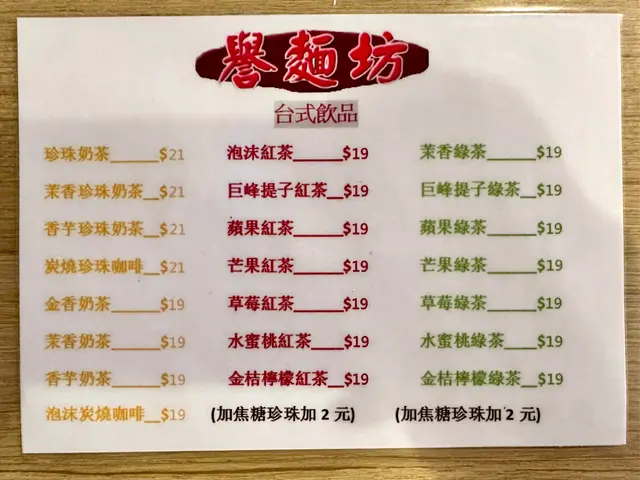 譽麵坊
台式飲品
珍珠奶茶_____$21
茉香珍珠奶茶__$21
香芋珍珠奶茶__$21
炭燒珍珠咖啡__$21
金香奶茶_____$19
茉香奶茶_____$19
香芋奶茶_____$19
泡沫炭燒咖啡__$19
泡沫紅茶_____$19
巨峰提子紅茶__$19
蘋果紅茶_____$19
芒果紅茶_____$19
草莓紅茶_____$19
水蜜桃紅茶___$19
金桔檸檬紅茶__$19
(加焦糖珍珠加 2 元)
茉香綠茶_____$19
巨峰提子綠茶__$19
蘋果綠茶_____$19
芒果綠茶_____$19
草莓綠茶_____$19
水蜜桃綠茶___$19
金桔檸檬綠茶__$19
(加焦糖珍珠加 2 元)